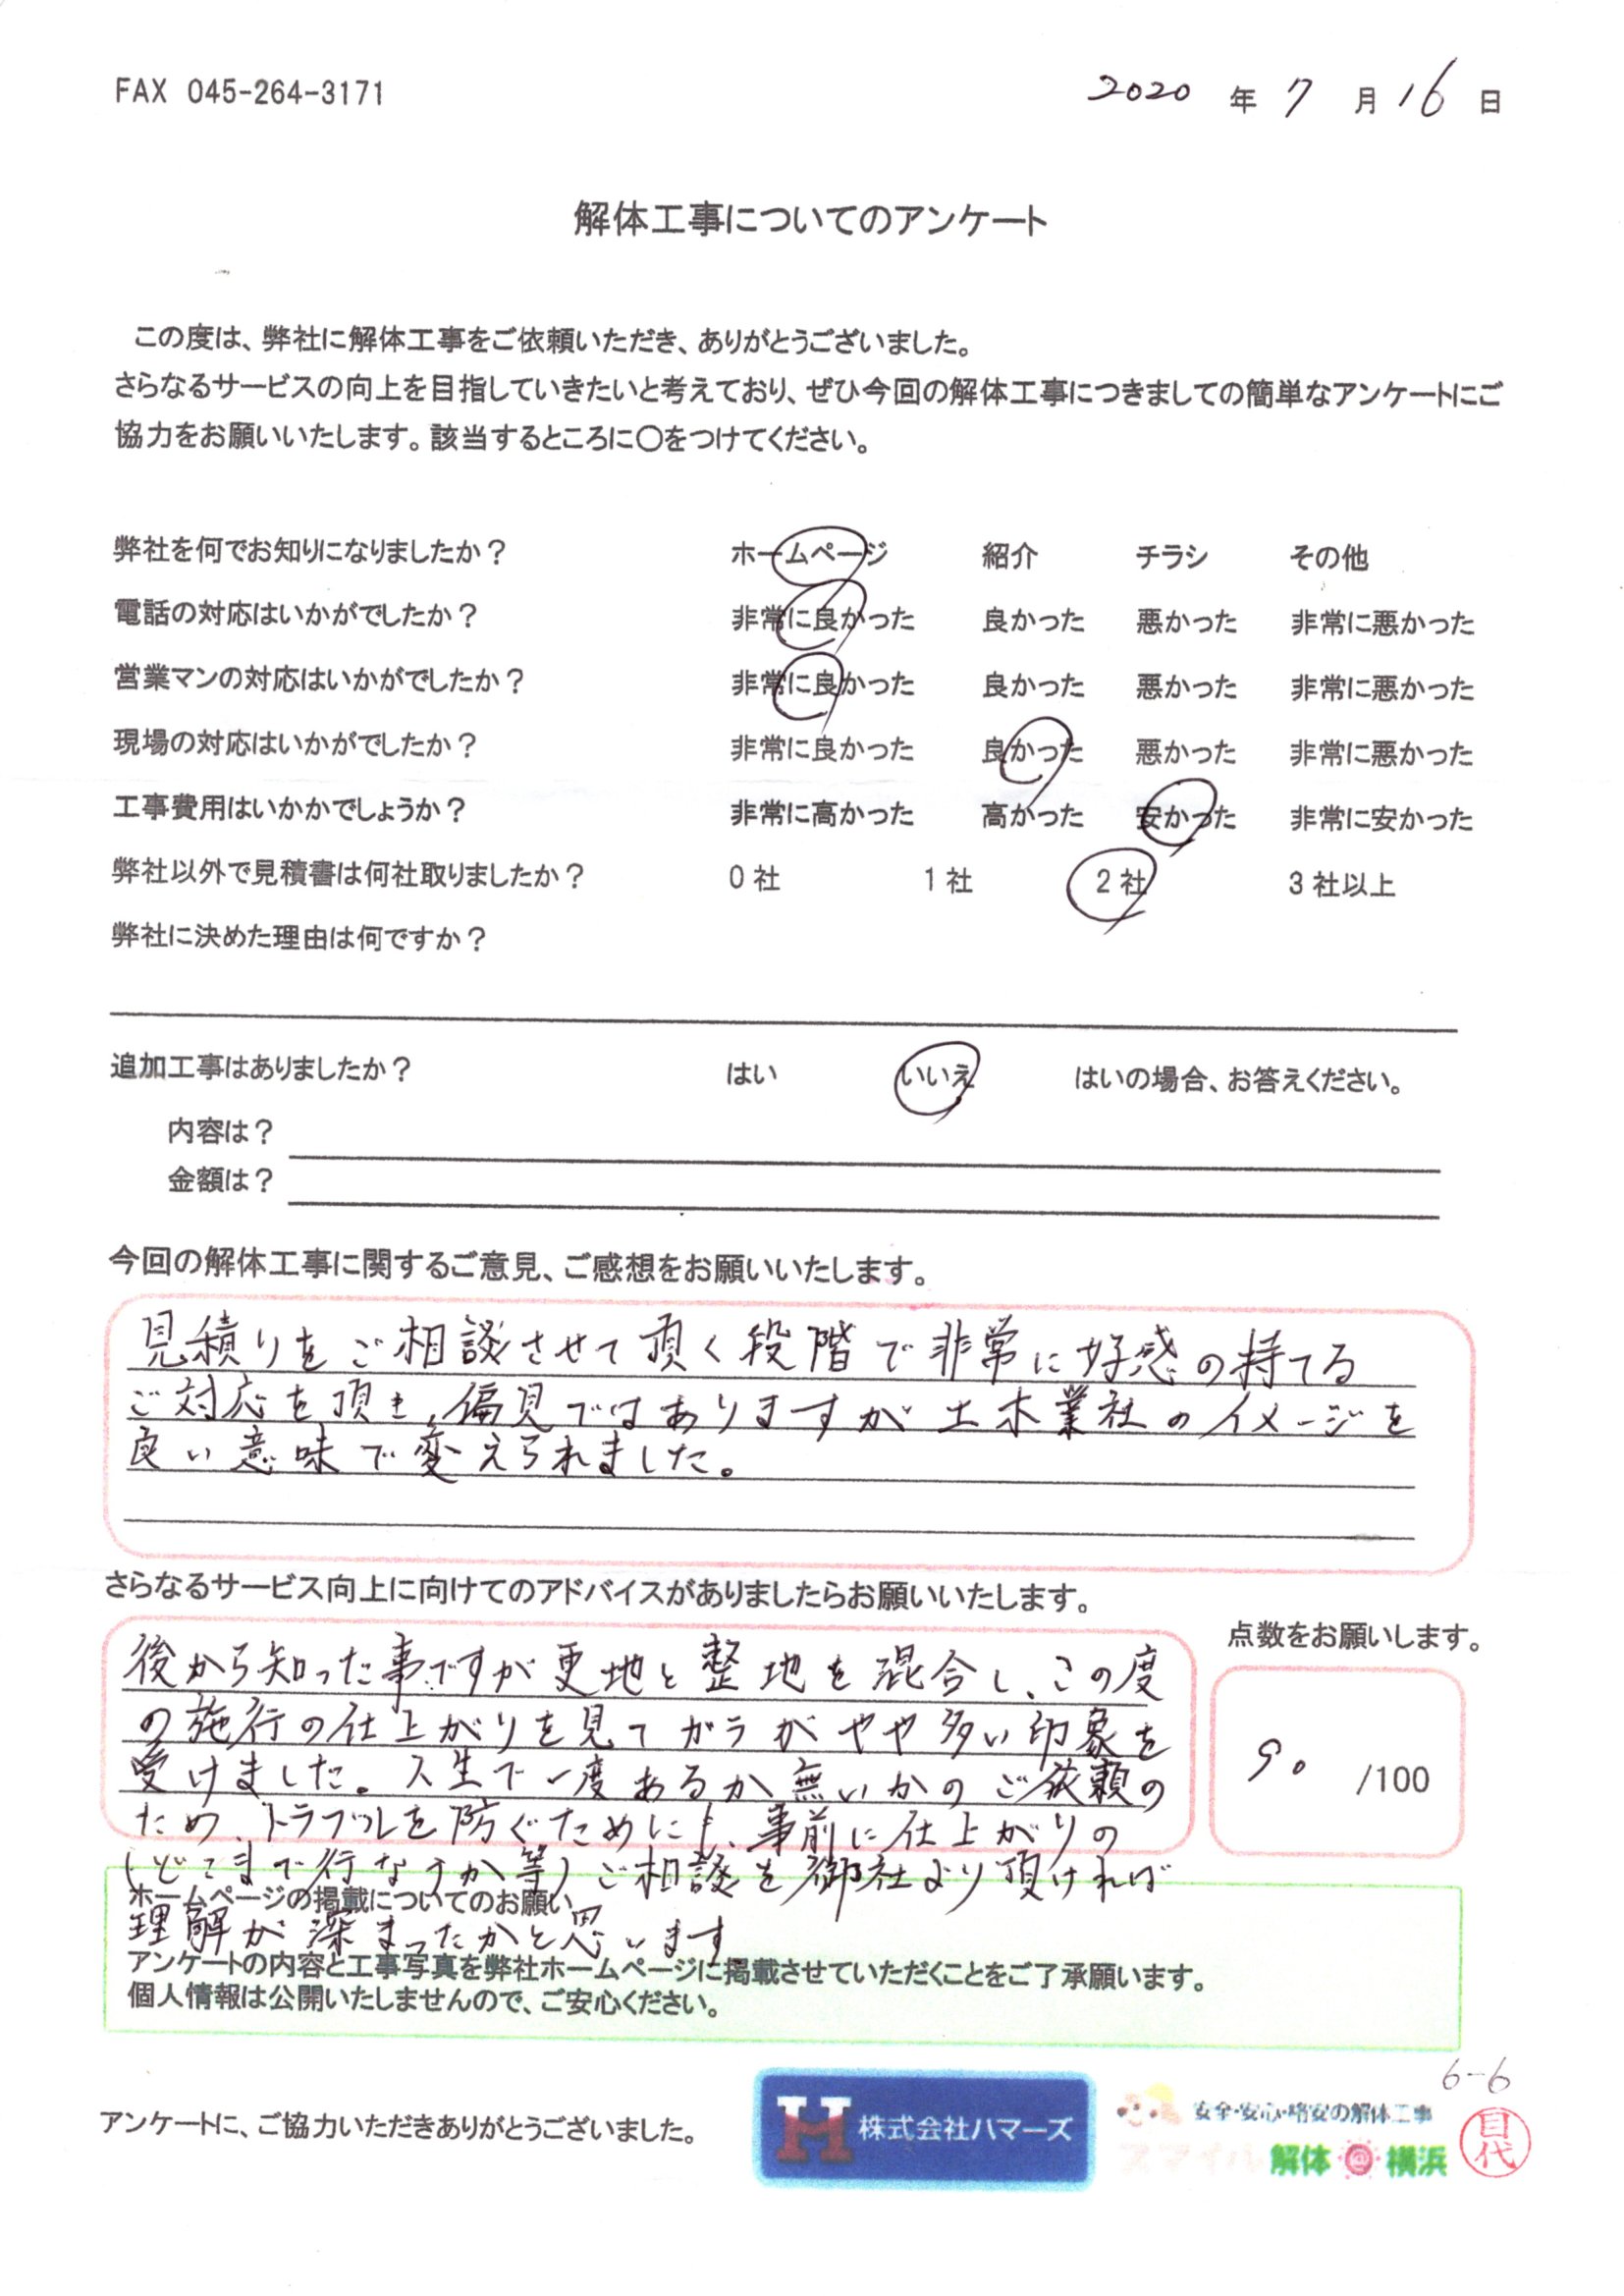 FAX 045-264-3171
2020 年 7 月 16 日
解体工事についてのアンケート
この度は、弊社に解体工事をご依頼いただき、ありがとうございました。
さらなるサービスの向上を目指していきたいと考えており、ぜひ今回の解体工事につきましての簡単なアンケートにご
協力をお願いいたします。該当するところに〇をつけてください。
弊社を何でお知りになりましたか？ ホームページ 紹介 チラシ その他
電話の対応はいかがでしたか？ 非常に良かった 良かった 悪かった 非常に悪かった
営業マンの対応はいかがでしたか？ 非常に良かった 良かった 悪かった 非常に悪かった
現場の対応はいかがでしたか？ 非常に良かった 良かった 悪かった 非常に悪かった
工事費用はいかかでしょうか？ 非常に高かった 高かった 安かった 非常に安かった
弊社以外で見積書は何社取りましたか？ 0 社 1 社 2 社 3 社以上
弊社に決めた理由は何ですか？
追加工事はありましたか？ はい いいえ はいの場合、お答えください。
内容は？
金額は？
今回の解体工事に関するご意見、ご感想をお願いいたします。
見積りをご相談させて頂く段階で非常に好感の持てる
ご対応を頂き、偏見ではありますが土木業社のイメージを
良い意味で変えられました。
さらなるサービス向上に向けてのアドバイスがありましたらお願いいたします。
点数をお願いします。
後から知った事ですが更地と整地を混合し、この度
の施行の仕上がりを見てガラがやや多い印象を
受けました。人生で一度あるか無いかのご依頼の
ため、トラブルを防ぐためにも、事前に仕上がりの
(どこまで行なうか等)ご相談を御社より頂ければ
理解が深まったかと思います
90 /100
ホームページの掲載についてのお願い
アンケートの内容と工事写真を弊社ホームページに掲載させていただくことをご了承願います。
個人情報は公開いたしませんので、ご安心ください。
6-6
アンケートに、ご協力いただきありがとうございました。
H 株式会社ハマーズ
安全・安心・格安の解体工事
スマイル解体@横浜
目代